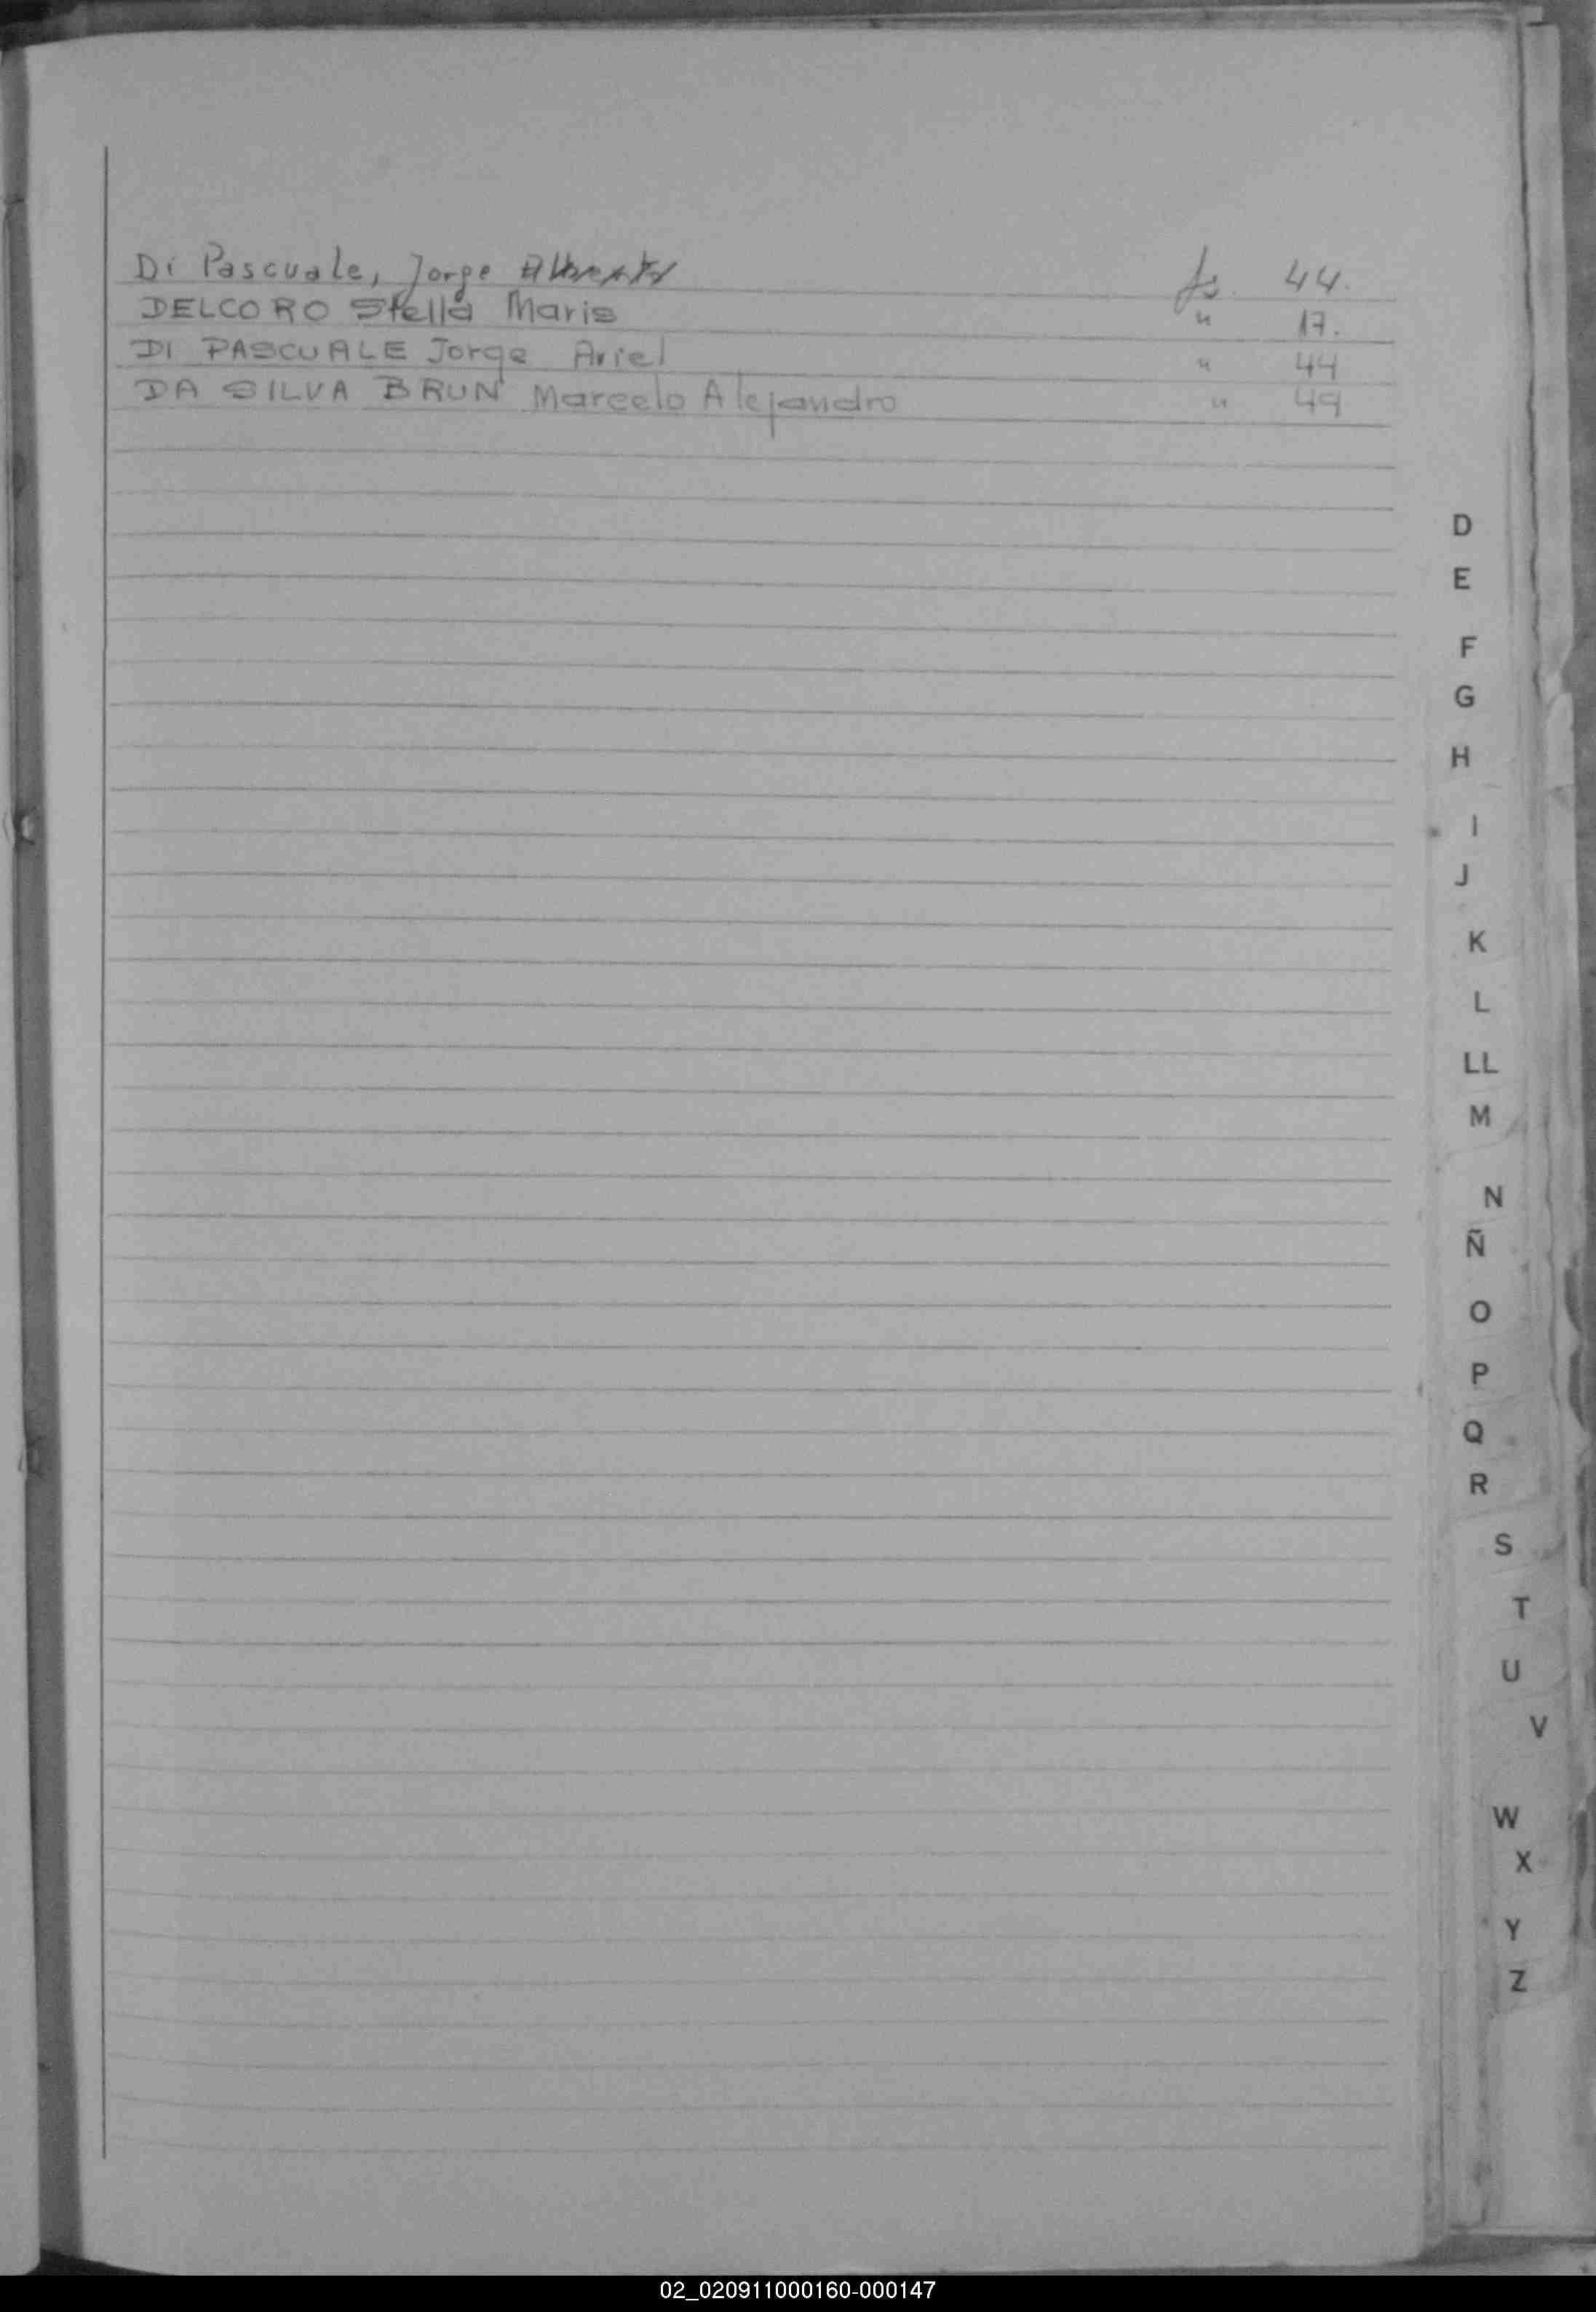 Di Pascuale, Jorge Alberto fs. 44.
DELCORO Stella Maris " 17.
DI PASCUALE Jorge Ariel " 44
DA SILVA BRUN Marcelo Alejandro " 49
D
E
F
G
H
I
J
K
L
LL
M
N
Ñ
O
P
Q
R
S
T
U
V
W
X
Y
Z
02_020911000160-000147